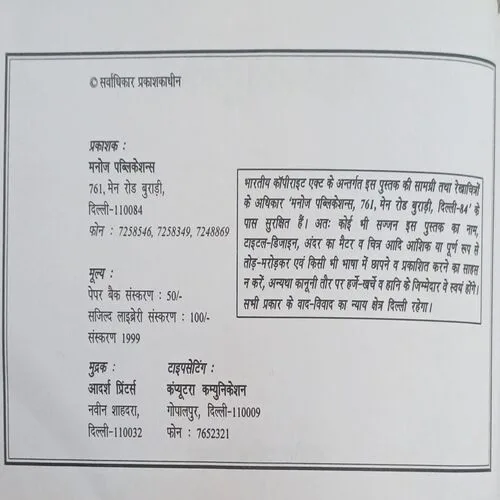 © सर्वाधिकार प्रकाशकाधीन
प्रकाशक :
मनोज पब्लिकेशन्स
761, मेन रोड बुराड़ी,
दिल्ली-110084
फोन : 7258546, 7258349, 7248869
मूल्य :
पेपर बैक संस्करण : 50/-
सजिल्द लाइब्रेरी संस्करण : 100/-
संस्करण 1999
मुद्रक :
आदर्श प्रिंटर्स
नवीन शाहदरा,
दिल्ली-110032
टाइपसेटिंग :
कंप्यूटरा कम्युनिकेशन
गोपालपुर, दिल्ली-110009
फोन : 7652321
भारतीय कॉपीराइट एक्ट के अन्तर्गत इस पुस्तक की सामग्री तथा रेखाचित्रों
के अधिकार 'मनोज पब्लिकेशन्स, 761, मेन रोड बुराड़ी, दिल्ली-84' के
पास सुरक्षित हैं। अतः कोई भी सज्जन इस पुस्तक का नाम,
टाइटल-डिजाइन, अंदर का मैटर व चित्र आदि आंशिक या पूर्ण रूप से
तोड़-मरोड़कर एवं किसी भी भाषा में छापने व प्रकाशित करने का साहस
न करें, अन्यथा कानूनी तौर पर हर्जे-खर्चे व हानि के जिम्मेदार वे स्वयं होंगे।
सभी प्रकार के वाद-विवाद का न्याय क्षेत्र दिल्ली रहेगा।